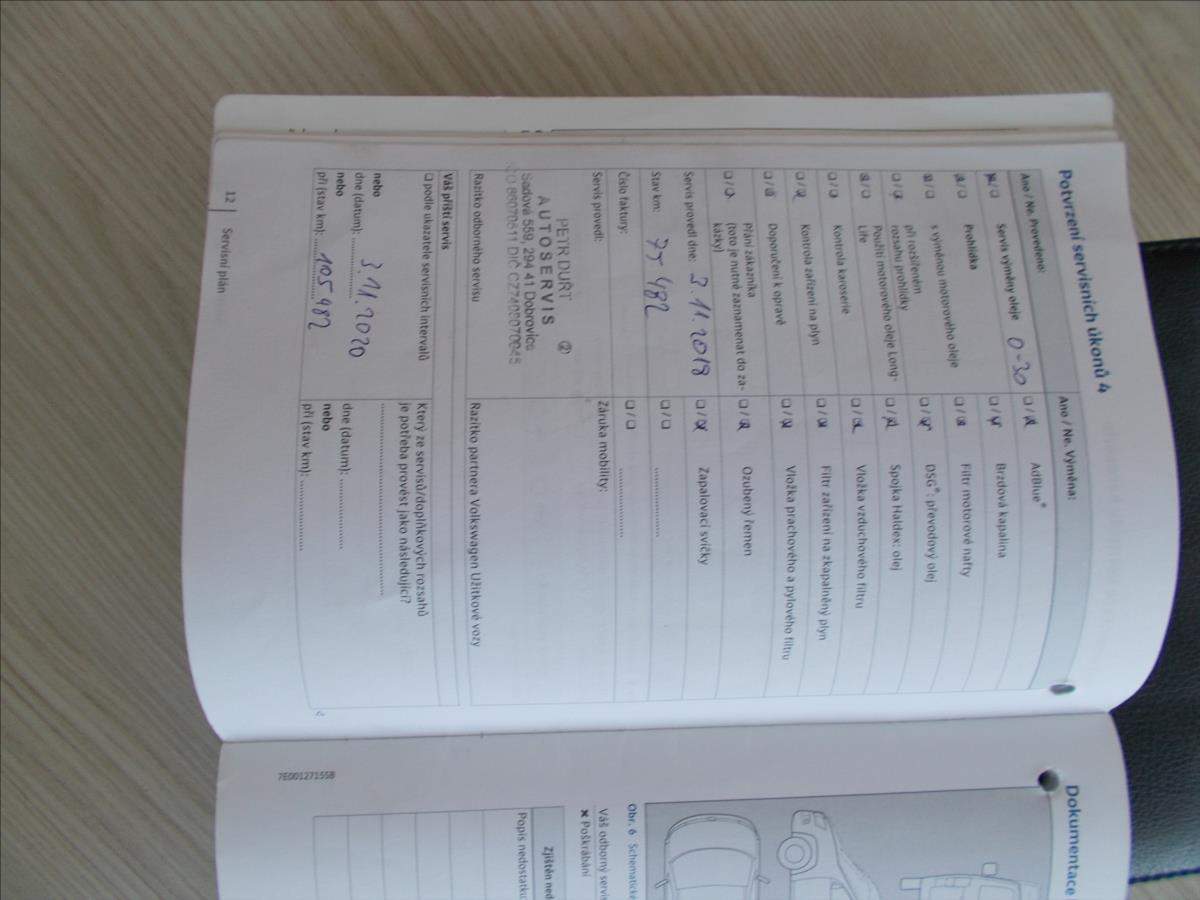 Potvrzení servisních úkonů 4
Ano / Ne. Provedeno:
Servis výměny oleje 0-30
Prohlídka
s výměnou motorového oleje
při rozšířeném
rozsahu prohlídky
Použití motorového oleje Long-
Life
Kontrola karoserie
Kontrola zařízení na plyn
Doporučení k opravě
Přání zákazníka
(toto je nutné zaznamenat do za-
kázky)
Servis provedl dne: 3.11.2018
Stav km: 75 482
Číslo faktury:
Servis provedl:
PETR DURT
AUTOSERVIS ②
Sadová 559, 294 41 Dobrovice
Razítko odborného servisu
Ano / Ne. Výměna:
AdBlue®
Brzdová kapalina
Filtr motorové nafty
DSG®: převodový olej
Spojka Haldex: olej
Vložka vzduchového filtru
Filtr zařízení na zkapalněný plyn
Vložka prachového a pylového filtru
Ozubený řemen
Zapalovací svíčky
Záruka mobility:
Razítko partnera Volkswagen Užitkové vozy
Váš příští servis
podle ukazatele servisních intervalů
nebo
dne (datum): 3.11.2020
nebo
při (stav km): 105 982
Který ze servisů/doplňkových rozsahů
je potřeba provést jako následující?
dne (datum):
nebo
při (stav km):
12 Servisní plán
Dokumentace
Obr. 6 Schematické
Váš odborný servis
✖ Poškrábání
Zjištěn ned
Popis nedostatku
7E0012715SB